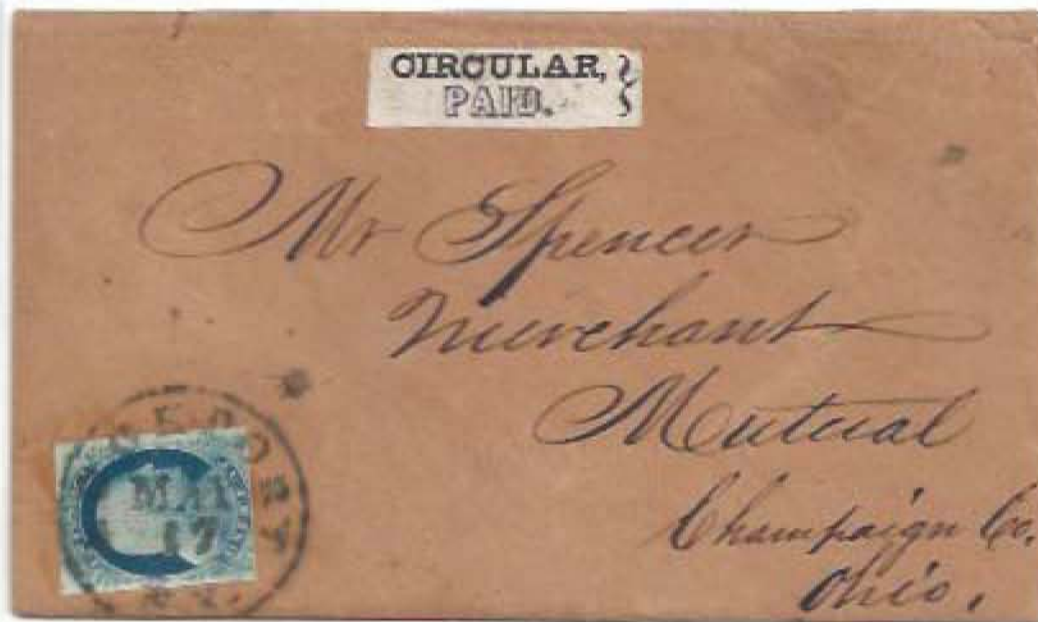 CIRCULAR,
PAID.
Mr Spencer
Merchant
Mutual
Champaign Co.
Ohio.
17
N.Y.